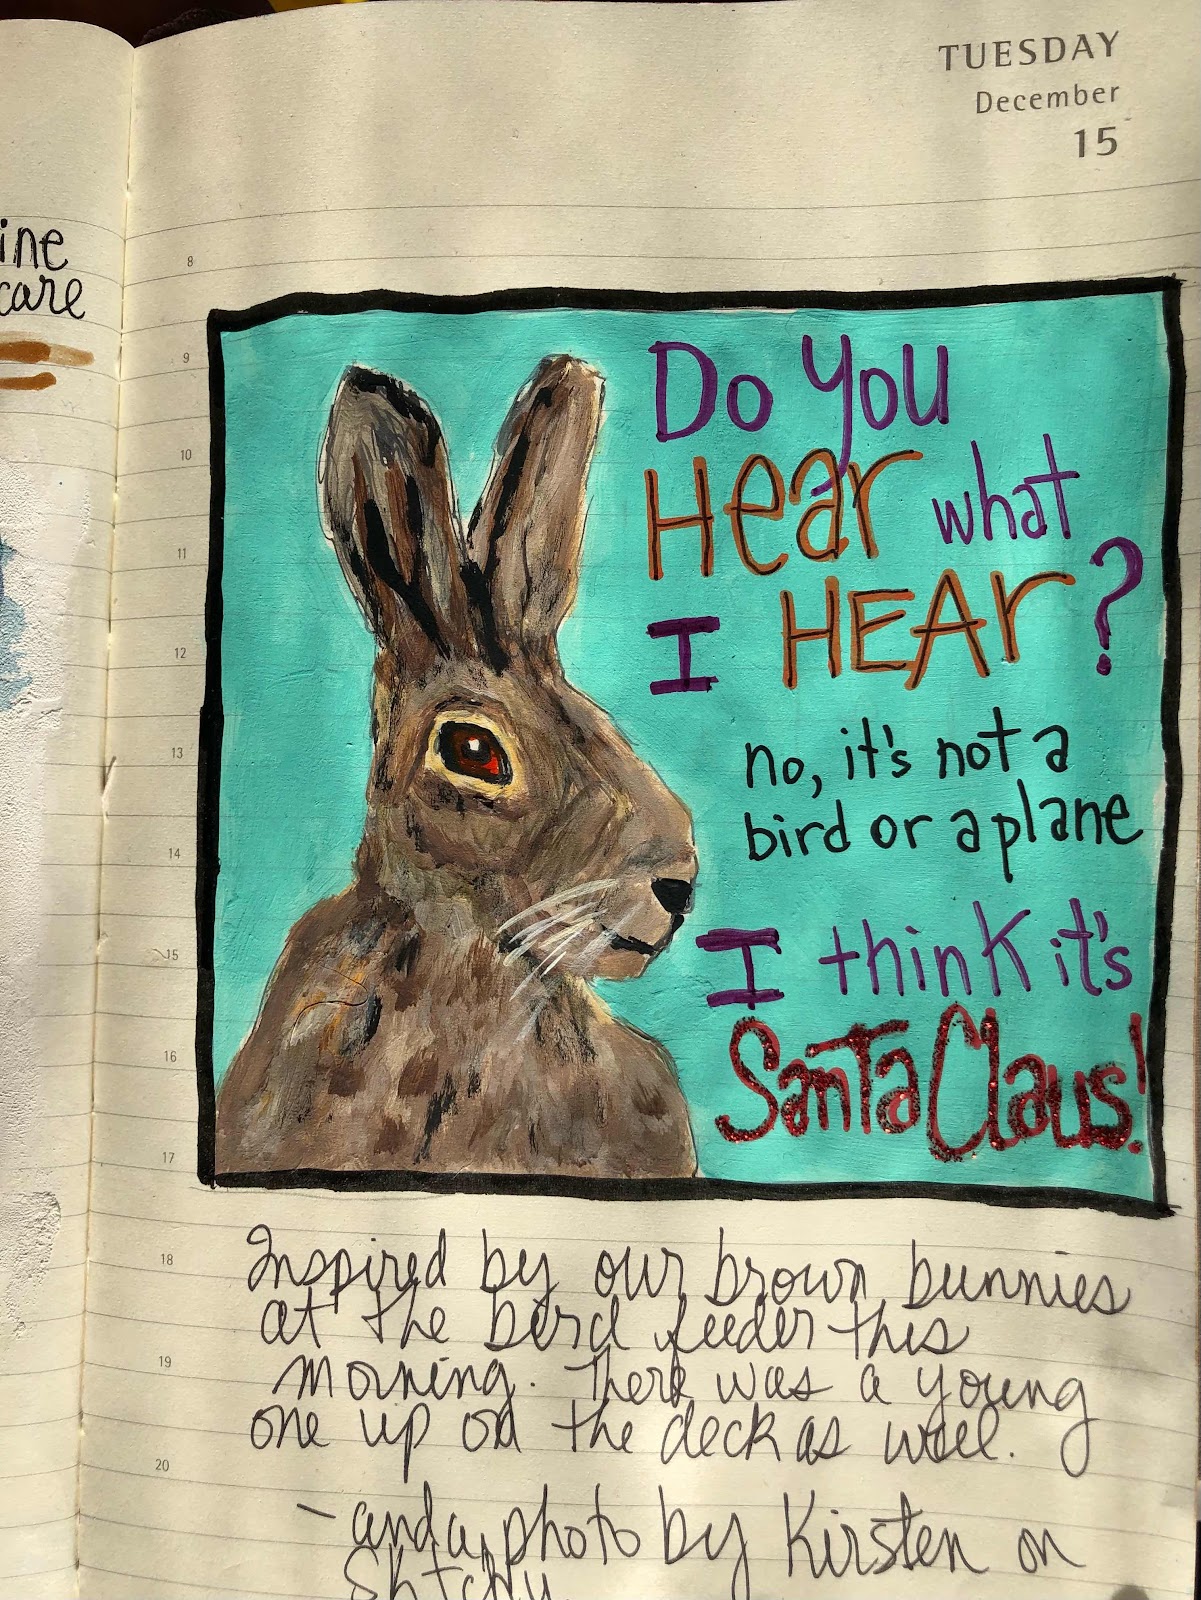 TUESDAY
December
15
ine
care
8
9
10
11
12
13
14
15
16
17
18
19
20
Do you
Hear what
I HEAR?
no, it's not a
bird or a plane
I think it's
Santa Claus!
Inspired by our brown bunnies
at the bird feeder this
morning. There was a young
one up on the deck as well.
- and a photo by Kirsten on
Sktchy